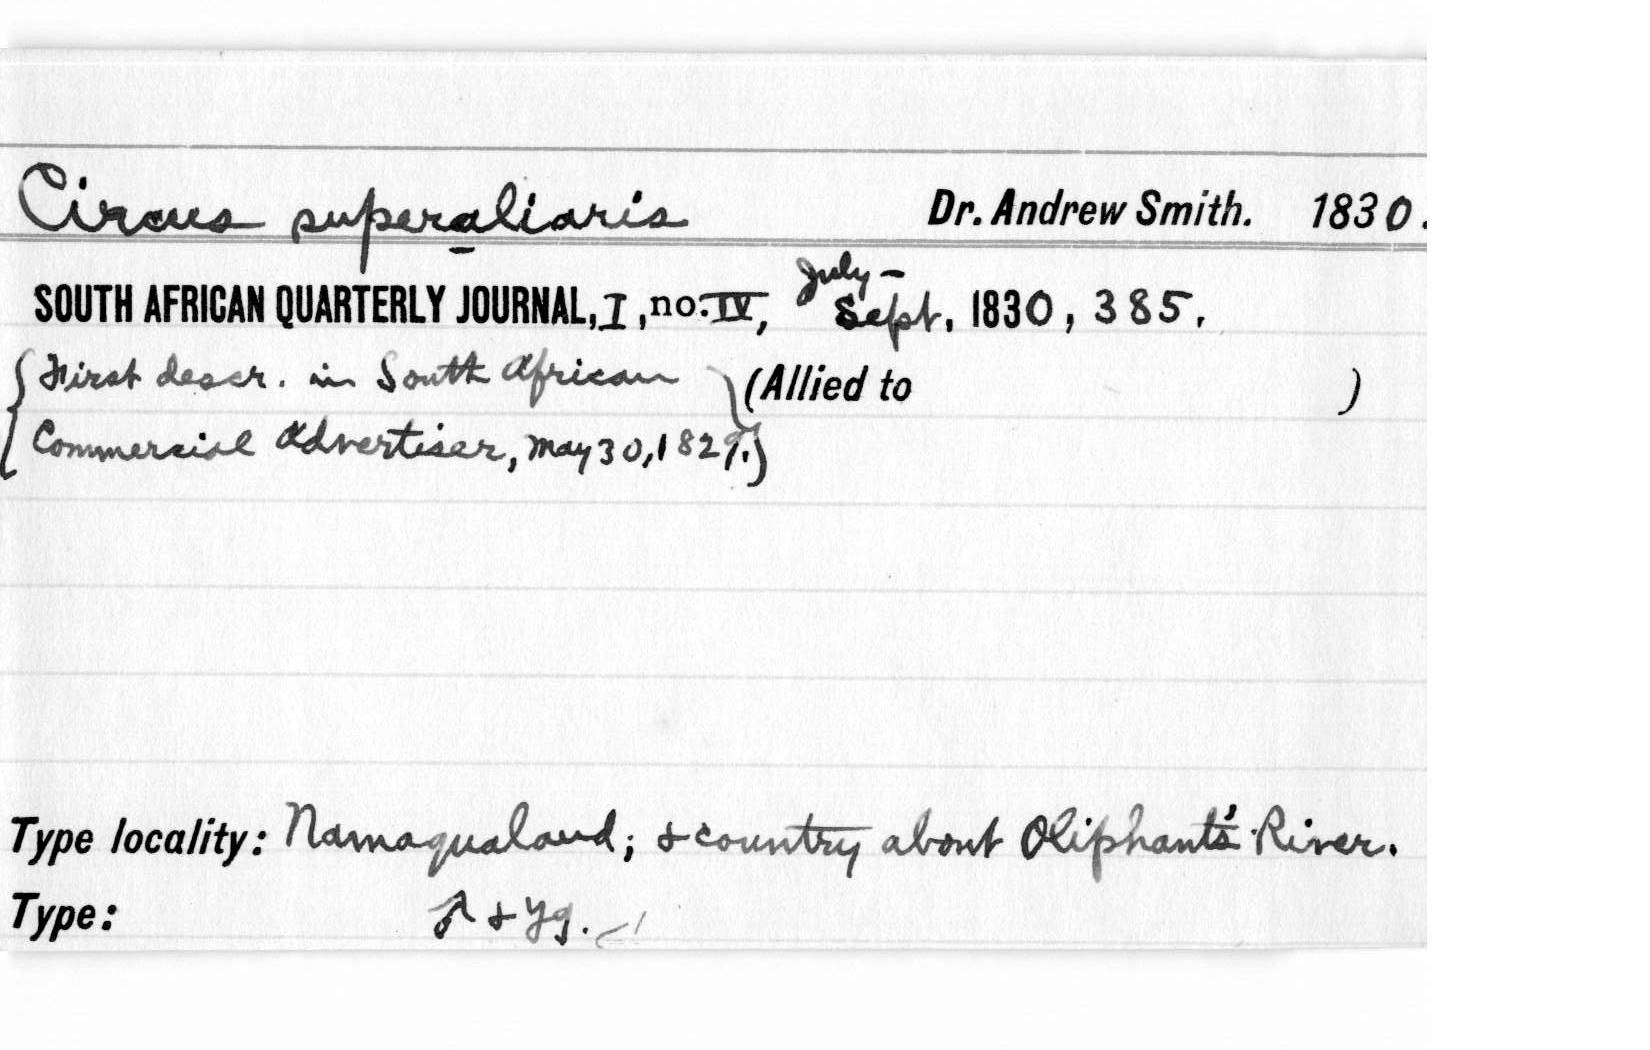 Circus superaliaris Dr. Andrew Smith. 1830.
SOUTH AFRICAN QUARTERLY JOURNAL, I, no. IV, July - Sept, 1830, 385.
{First descr. in South African} (Allied to )
{Commercial Advertiser, May 30, 1829.)
Type locality: Namaqualand; & country about Oliphant's River.
Type: ♂ & yg.